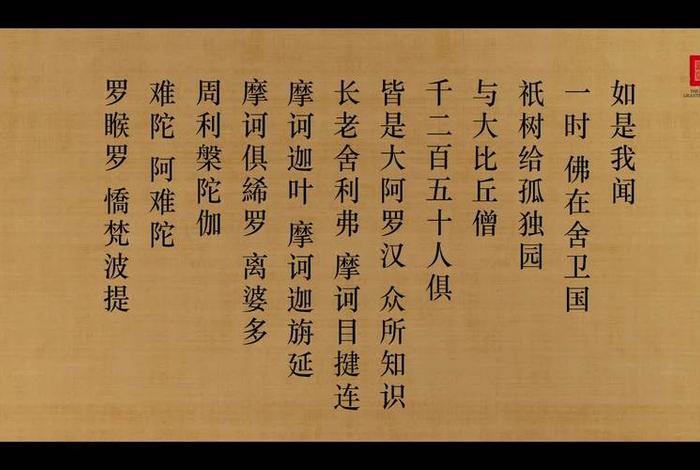 如是我闻
一时 佛在舍卫国
祇树给孤独园
与大比丘僧
千二百五十人俱
皆是大阿罗汉 众所知识
长老舍利弗 摩诃目揵连
摩诃迦叶 摩诃迦旃延
摩诃俱絺罗 离婆多
周利槃陀伽
难陀 阿难陀
罗睺罗 憍梵波提